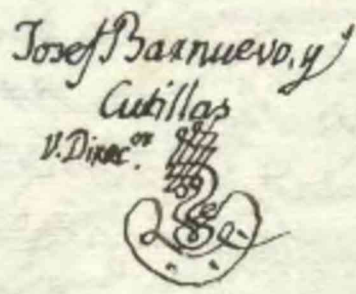 Josef Barnuevo, y
Cutillas
V. Direc.ᵒʳ